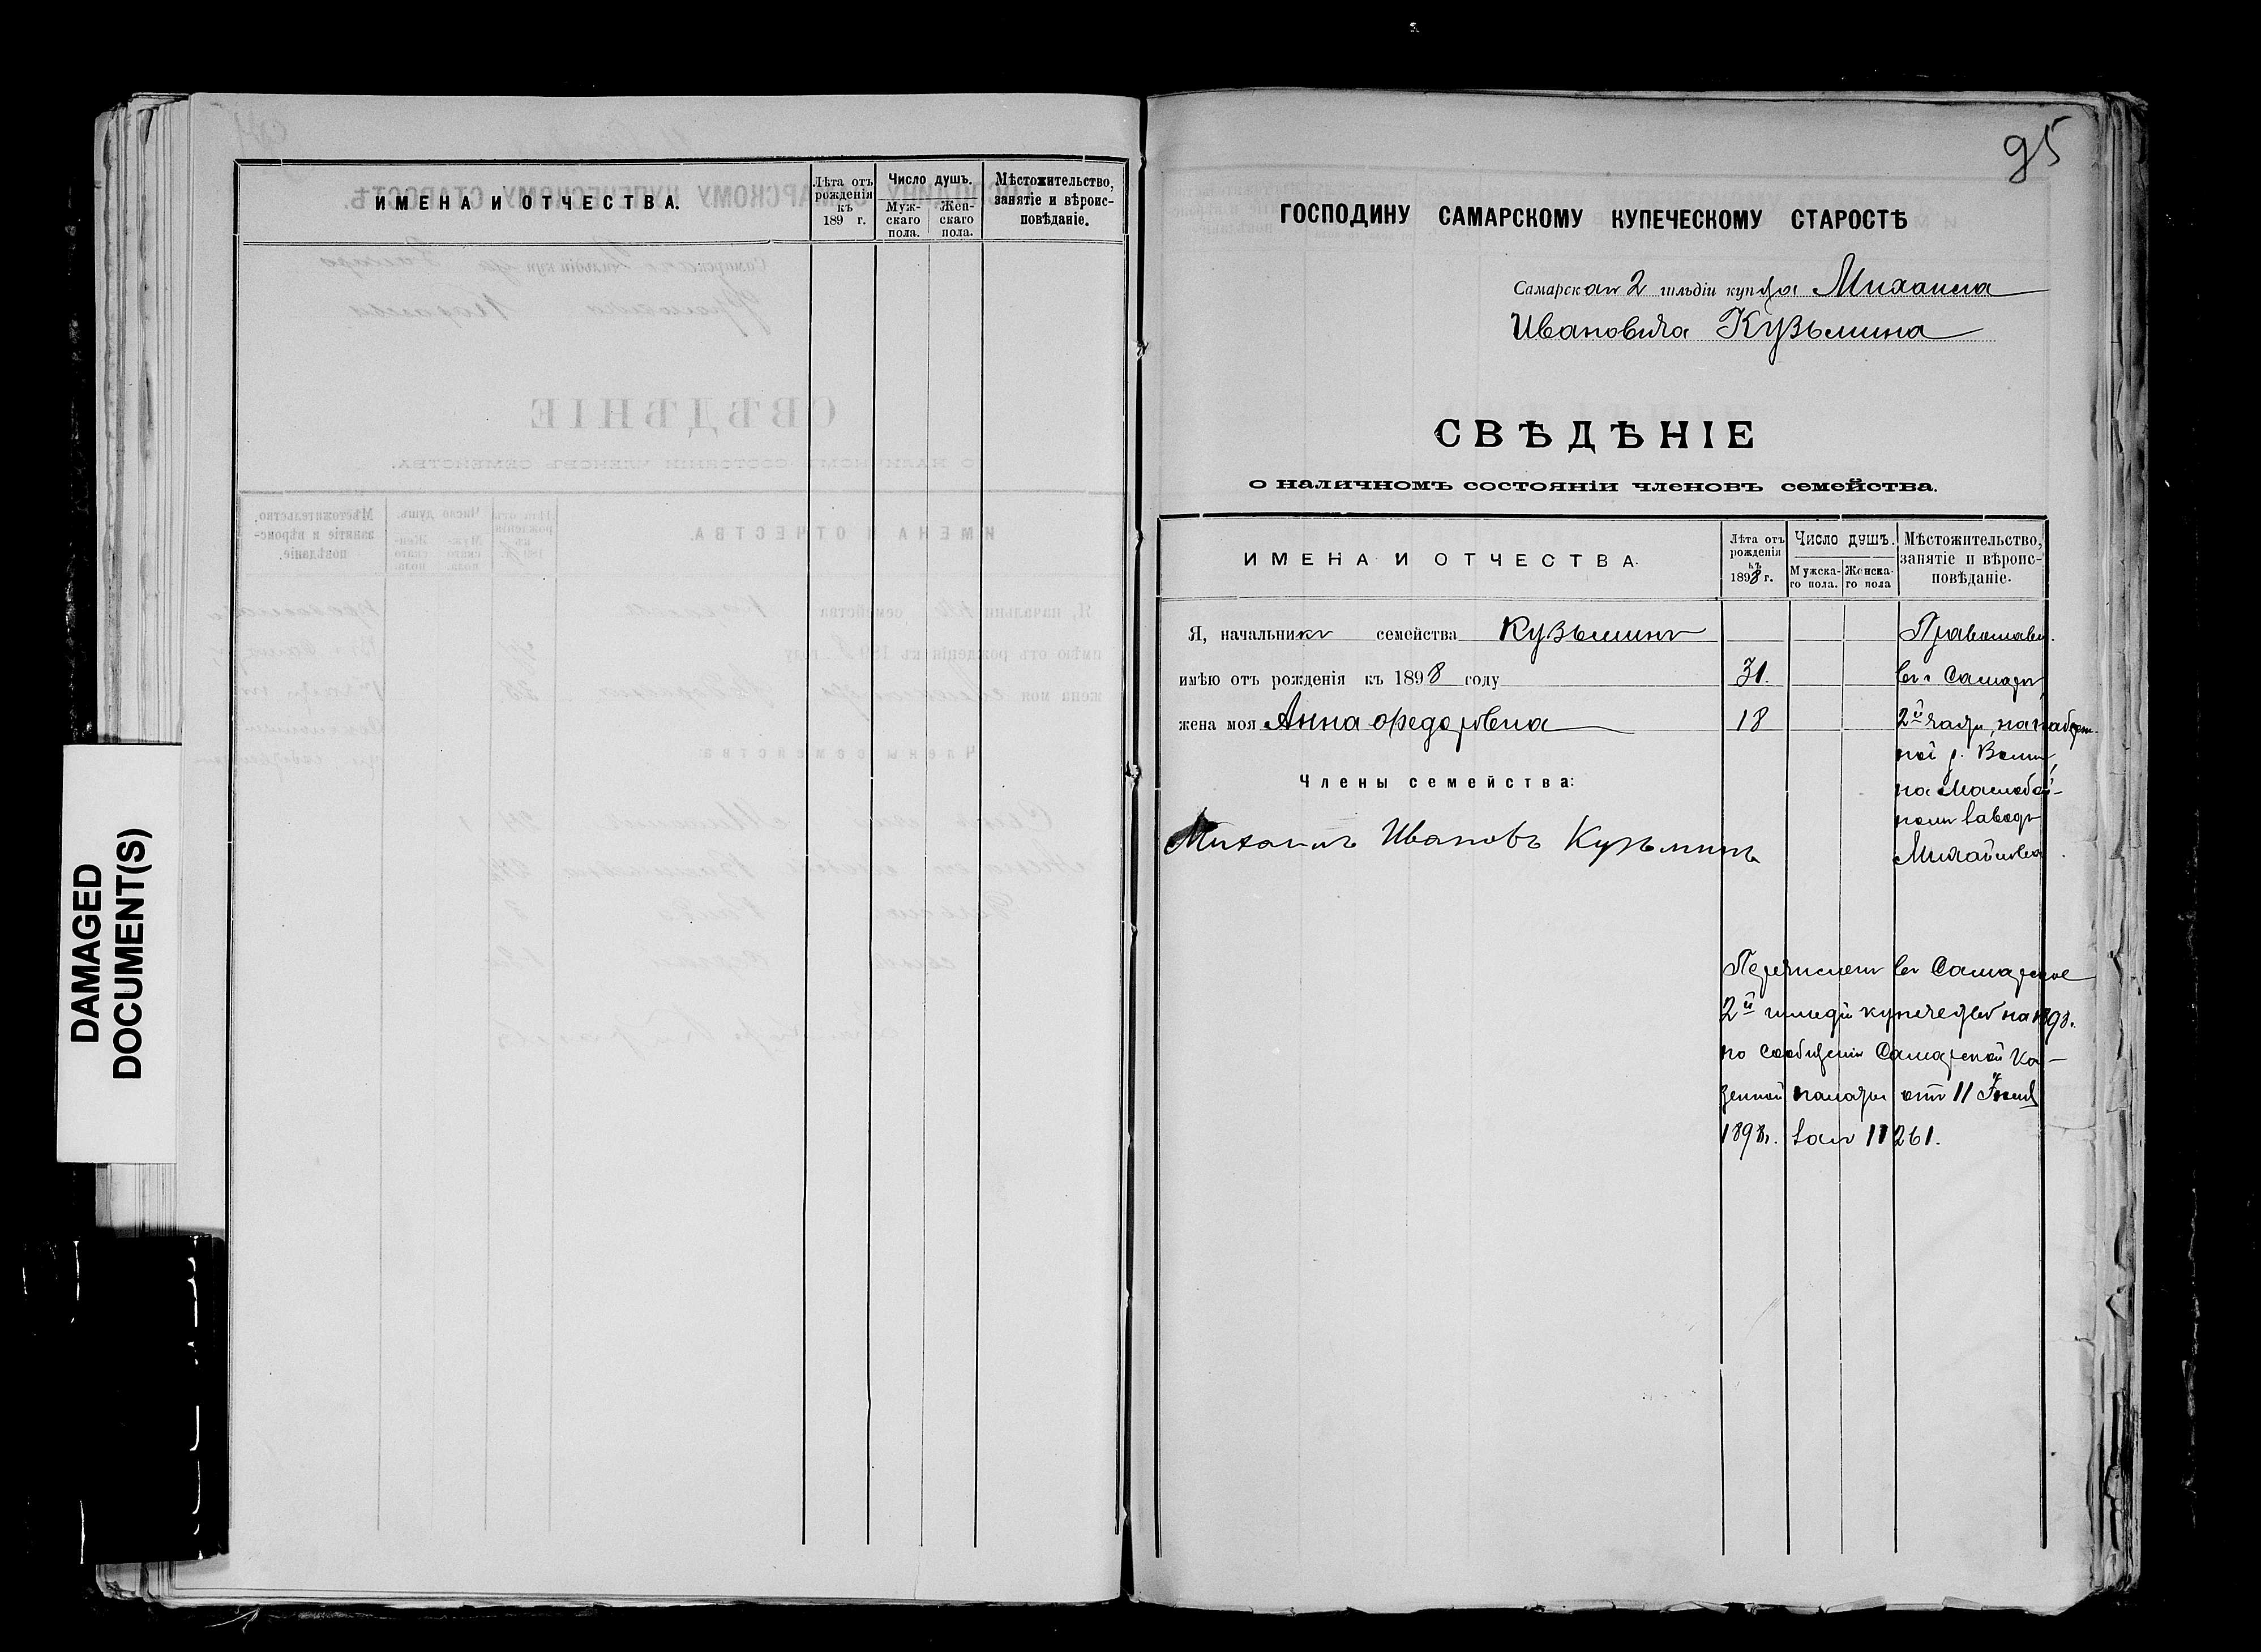 ИМЕНА И ОТЧЕСТВА.
Лѣта отъ рожденія къ 189 г.
Число душъ.
Мужскаго пола.
Женскаго пола.
Мѣстожительство, занятіе и вѣроисповѣданіе.
DAMAGED
DOCUMENT(S)
95
ГОСПОДИНУ САМАРСКОМУ КУПЕЧЕСКОМУ СТАРОСТѢ
Самарскаго 2 гильдіи купца Михаила
Ивановича Кузьмина
СВѢДѢНІЕ
о наличномъ состояніи членовъ семейства.
ИМЕНА И ОТЧЕСТВА.
Лѣта отъ рожденія къ 1898 г.
Число душъ.
Мужскаго пола.
Женскаго пола
Мѣстожительство, занятіе и вѣроисповѣданіе.
Я, начальникъ семейства Кузьминъ Православн.
имѣю отъ рожденія къ 1898 году 31. въ г Самарѣ
жена моя Анна Федоровна 18 2й части, на набереж-
ной р. Волги,
Члены семейства:
на Маслобой-
номъ заводѣ
Михаилъ Ивановъ Кузьминъ
Перечисленъ въ Самарское
2й гильдіи купечество на 1898.
по сообщенію Самарской Ка-
зенной палаты отъ 11
1898г. за № 11261.